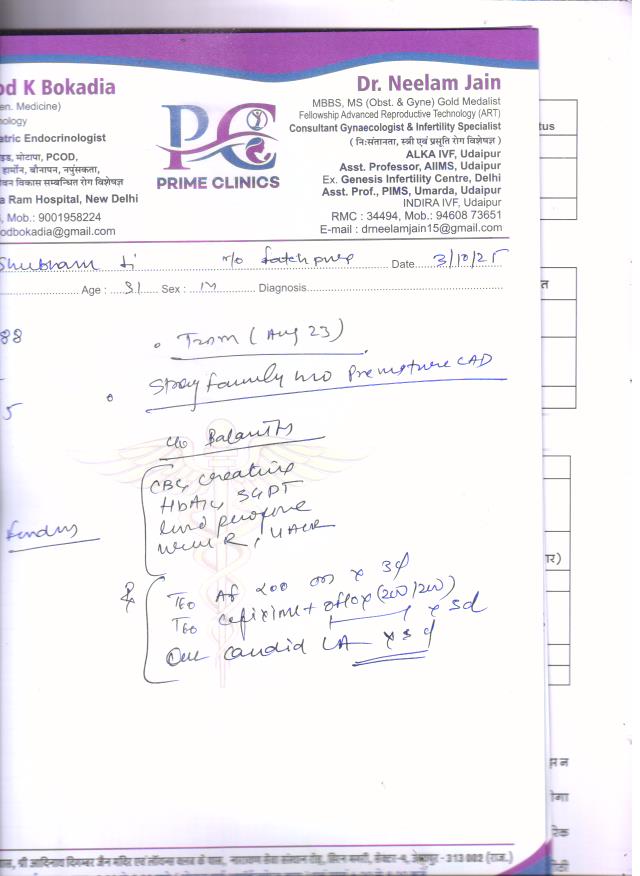 od K Bokadia
en. Medicine)
ology
atric Endocrinologist
इड, मोटापा, PCOD,
हार्मोन, बौनापन, नपुंसकता,
विकास सम्बन्धित रोग विशेषज्ञ
a Ram Hospital, New Delhi
, Mob.: 9001958224
odbokadia@gmail.com
PC
PRIME CLINICS
Dr. Neelam Jain
MBBS, MS (Obst. & Gyne) Gold Medalist
Fellowship Advanced Reproductive Technology (ART)
Consultant Gynaecologist & Infertility Specialist
( नि:संतानता, स्त्री एवं प्रसूति रोग विशेषज्ञ )
ALKA IVF, Udaipur
Asst. Professor, AIIMS, Udaipur
Ex. Genesis Infertility Centre, Delhi
Asst. Prof., PIMS, Umarda, Udaipur
INDIRA IVF, Udaipur
RMC : 34494, Mob.: 94608 73651
E-mail : drneelamjain15@gmail.com
Shubham Ji r/o fatehpura Date 3/10/25
Age : 31 Sex : M Diagnosis
88
• T2DM (Aug 23)
• Strong family h/o Premature CAD
5
c/o Balanitis
CBC, creatinine
HbA1c, SGPT
Lipid profile
Urine R, UACR
fundus
Rx
Tab AF 200 OD x 3d
Tab cefixime + oflox (200/200)
x 5d
candid LA x 5d
tus
त
ार)